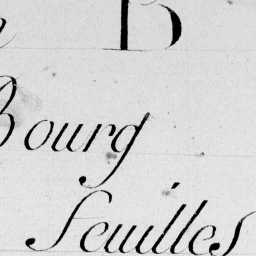 D
Bourg
feuilles